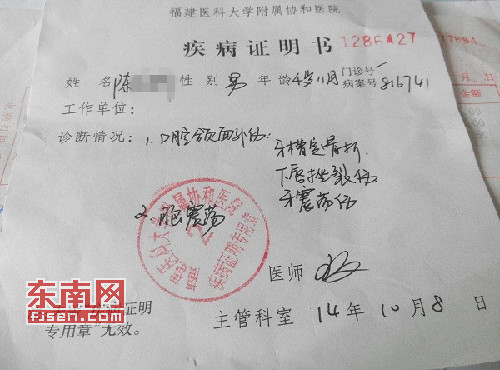 福建医科大学附属协和医院
疾病证明书 128FA27
姓名 陈 性别 男 年龄 4岁11月 门诊号
病案号 816741
工作单位:
诊断情况: 1. 口腔颌面外伤: 牙槽突骨折
下唇挫裂伤
牙震荡伤
2. 脑震荡
属协和医院
疾病证明专用章
医师
东南网
fjsen.com
证明
专用章"无效。
主管科室 14年10月8日